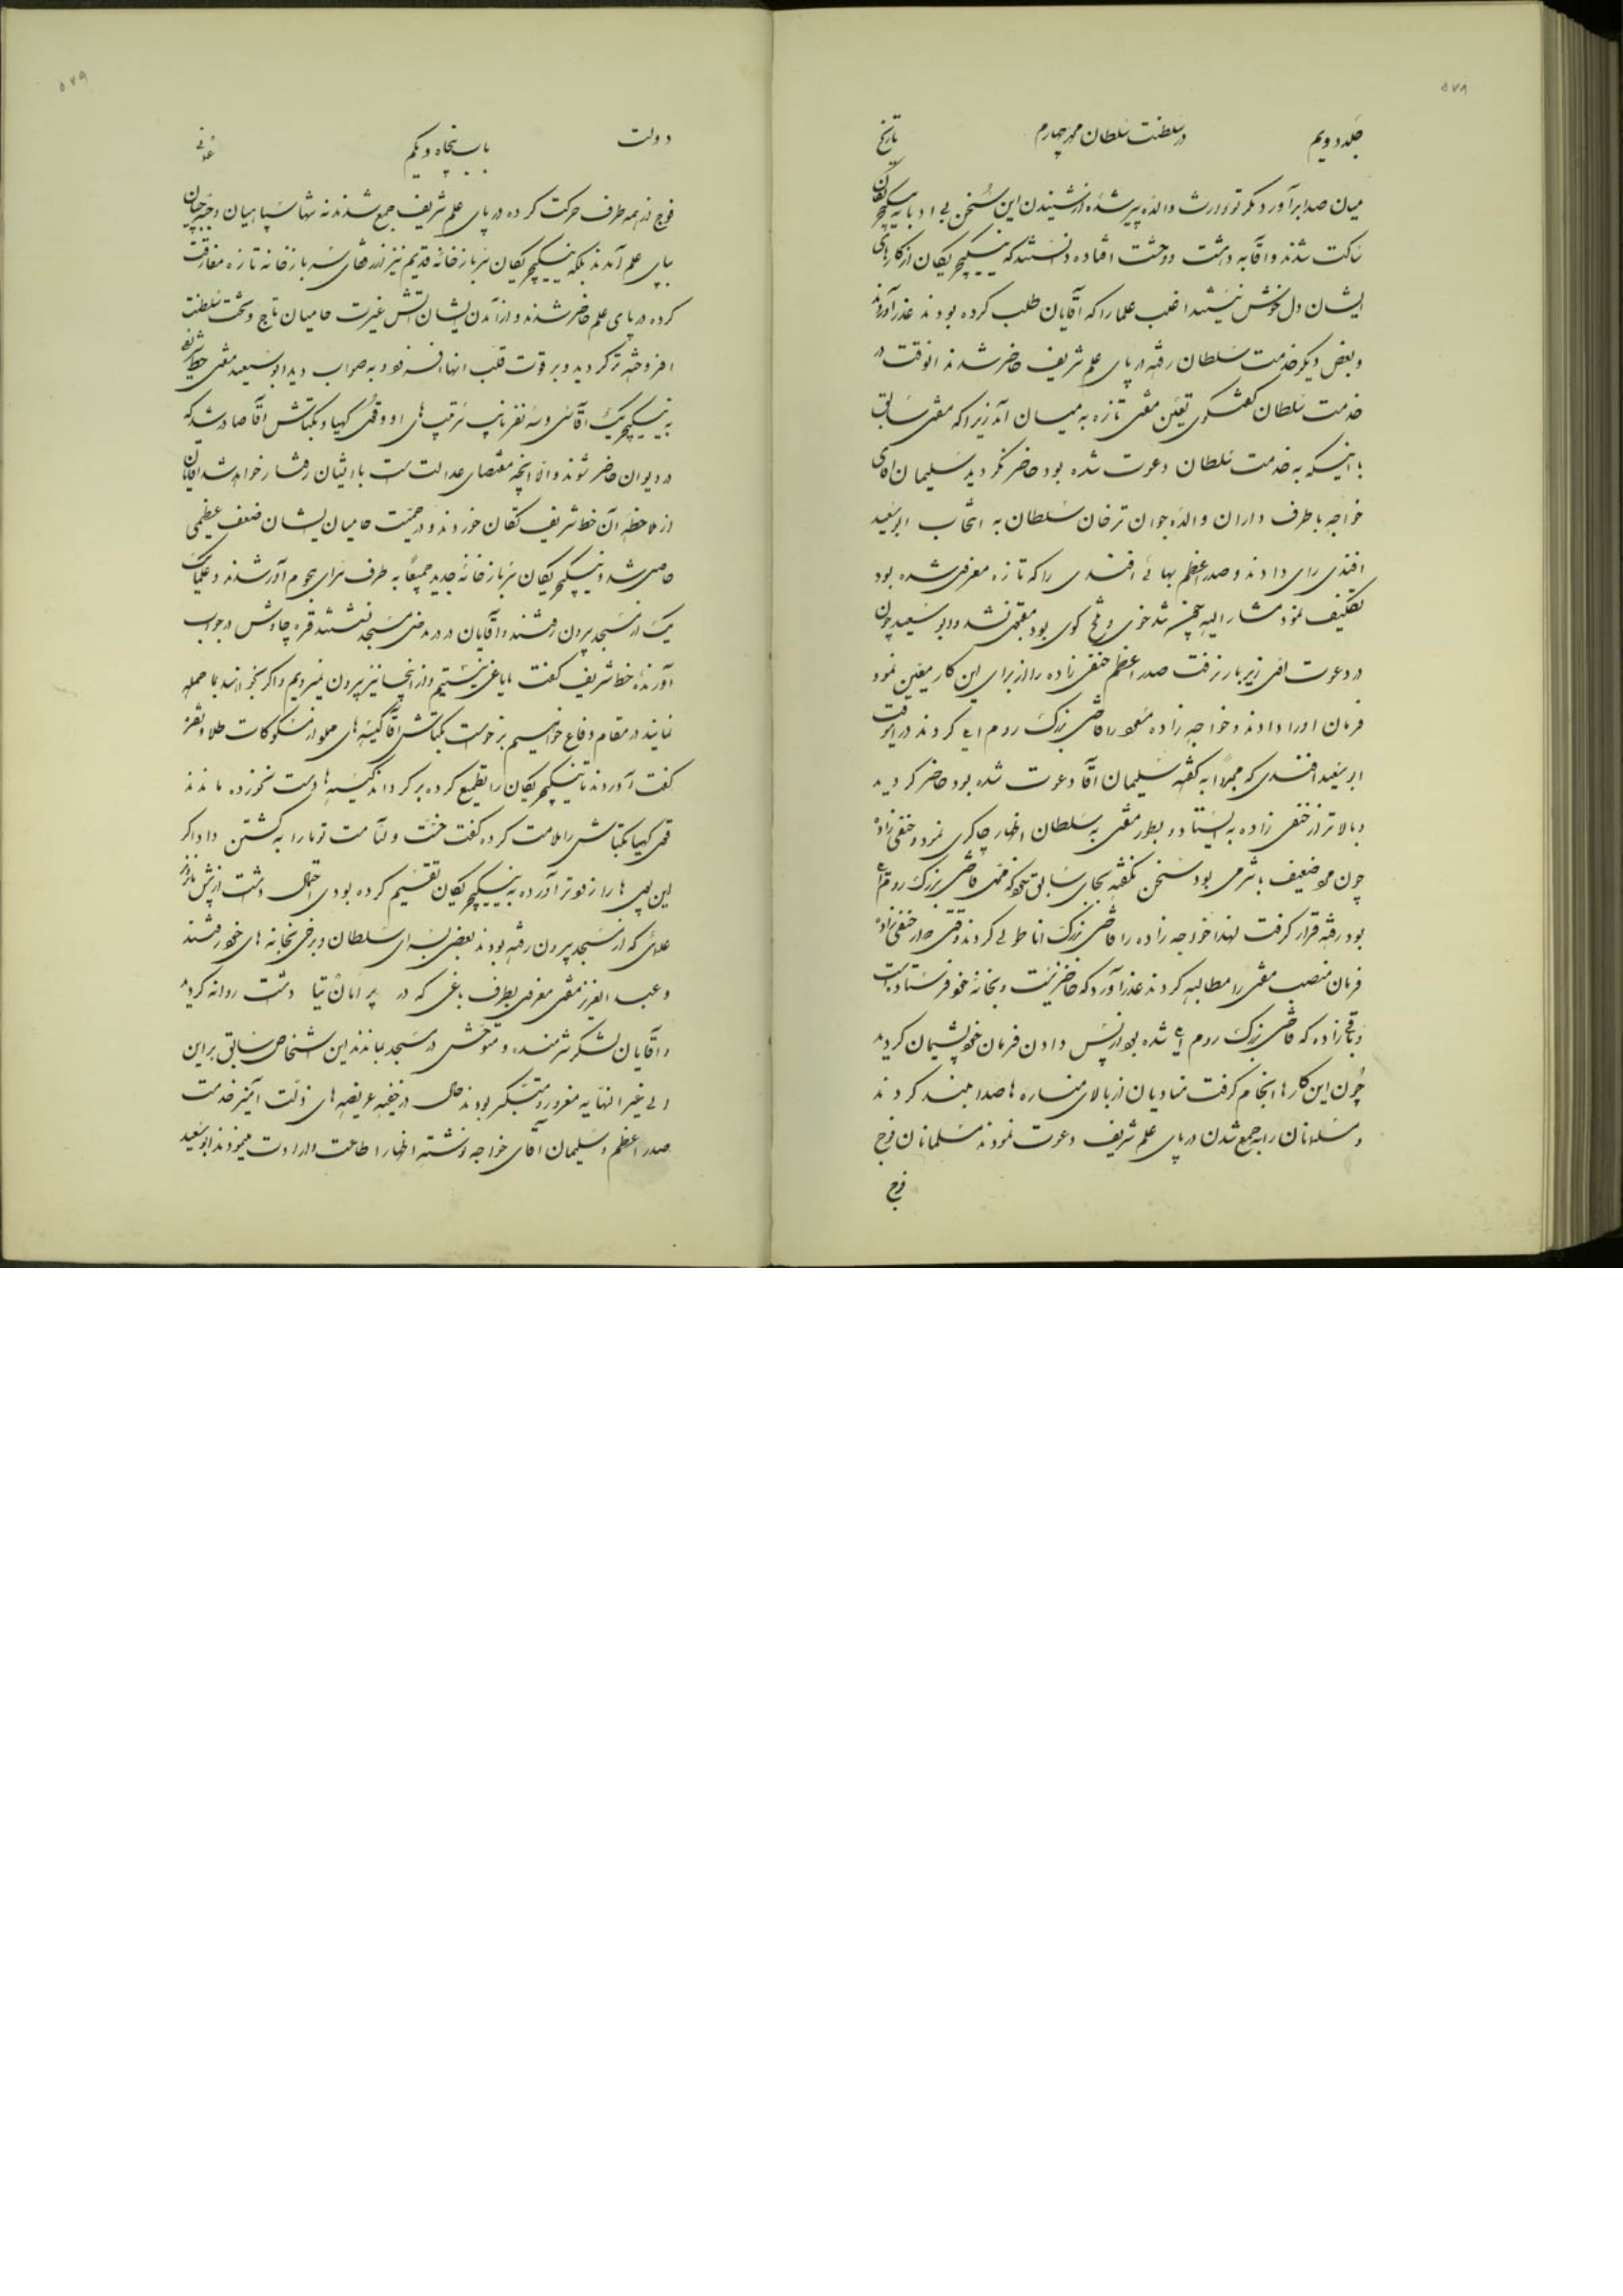 جلد دویم
در سلطنت سلطان محمد چهارم
تاریخ
میان صدا برآورد مگر تو وارث والده پیر شده از شنیدن این سخن بی ادبانه ینیکچریکان
ساکت شدند و آقا به دهشت و وحشت افتاده دانستند که ینیکچریکان از کارهای
ایشان دل خوش نیستند اغلب علما را که آقایان طلب کرده بودند عذر آوردند
و بعض دیگر خدمت سلطان رفته در پای علم شریف حاضر شدند انوقت در
خدمت سلطان گفتگوی تعیین مفتی تازه به میان آمد زیرا که مفتی سابق
با اینکه به خدمت سلطان دعوت شده بود حاضر نگردید سلیمان آقای
خواجه با طرف داران والده جوان ترخان سلطان به انتخاب ابوسعید
افندی رای دادند و صدر اعظم بهائی افندی را که تازه معزول شده بود
تکلیف نمود مشار الیه تند خوی و کوی بود مفتی نشد و ابوسعید چون
در دعوت اول زیر بار نرفت صدر اعظم حنفی زاده را از برای این کار معین نمود
فرمان او را دادند و خواجه زاده مسعود را قاضی بزرگ روم ایلی کردند در این وقت
ابوسعید افندی که مجدداً به گفته سلیمان آقا دعوت شده بود حاضر گردید
و بالاتر از حنفی زاده به ایستاد و بطور مفتی به سلطان اظهار چاکری نمود و حنفی زاده
چون مرد ضعیف با شرمی بود سخن نگفته بجای سابق خود که قاضی بزرگ روم ایلی
بود رفته قرار گرفت لهذا خواجه زاده را قاضی بزرگ اناطولی کردند وقتی که از حنفی زاده
فرمان منصب مفتی را مطالبه کردند عذر آورد که حاضر نیست و بخانه خود فرستاده است
زاده که قاضی بزرگ روم ایلی شده بود از پس دادن فرمان خود پشیمان گردید
چون این کارها انجام گرفت منادیان از بالای مناره ها صدا بلند کردند
و مسلمانان را به جمع شدن در پای علم شریف دعوت نمودند مسلمانان فوج
فوج
دولت
باب پنجاه و یکم
عثمانی
فوج از همه طرف حرکت کرده در پای علم شریف جمع شدند نه تنها سپاهیان و جبه چیان
بپای علم آمدند بلکه ینیکچریکان سربازخانه قدیم نیز از رفقای سربازخانه تازه مفارقت
کرده در پای علم حاضر شدند و از آمدن ایشان آتش غیرت حامیان تاج و تخت سلطنت
افروخته تر گردید و بر قوت قلب انها افزود به صواب دید ابوسعید مفتی خط شریفی
به ینیکچریک آقاسی و سه نفر نایب سرتیپ های او و قول کهیا و بکتاش آقا صادر شد که
در دیوان حاضر شوند و الا انچه مقتضای عدالت است با ایشان رفتار خواهد شد آقایان
از ملاحظه آن خط شریف تکان خوردند و در جمعیت حامیان ایشان ضعف عظیمی
حاصل شد و ینیکچریکان سربازخانه جدید جمیعاً به طرف سرای هجوم آور شدند و علما یک
یک از مسجد بیرون رفتند و آقایان در مسجد نشستند قره چاوش در جواب
آورنده خط شریف گفت ما یاغی نیستیم و از اینجا نیز بیرون نمیرویم و اگر بخواهند بما حمله
نمایند در مقام دفاع خواهیم برخواست بکتاش آقا کیسه های مملو از مسکوکات طلا و نقره
گفت آوردند تا ینیکچریکان را تطمیع کرده برگرداند کیسه ها دست نخورده ماندند
قول کهیا بکتاش را ملامت کرده گفت خست و لئامت تو ما را به کشتن داد اگر
این پول ها را زودتر آورده به ینیکچریکان تقسیم کرده بودی احتمال داشت از پیش
علمائی که از مسجد بیرون رفته بودند بعضی بسرای سلطان و برخی بخانه های خود رفتند
و عبدالعزیز مفتی معزول بطرف باغی که در داشت روانه گردید
و آقایان لشکر شرمنده و متوحش در مسجد بماندند این اشخاص سابق بر این
الی غیر النهایه مغرور و متکبر بودند حال در خفیه عریضه های ذلت آمیز خدمت
صدر اعظم و سلیمان آقای خواجه نوشته اظهار اطاعت و ارادت مینمودند ابوسعید